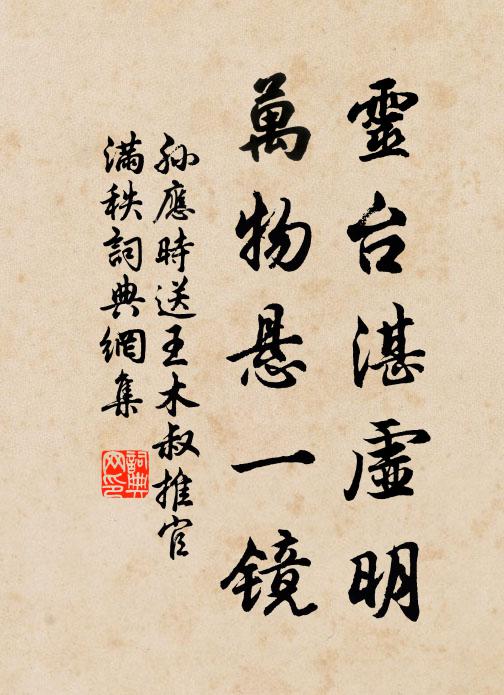 靈台湛虛明
萬物悬一镜
孙應時送王木叔推官
滿秩詞典網集
詞典
网印